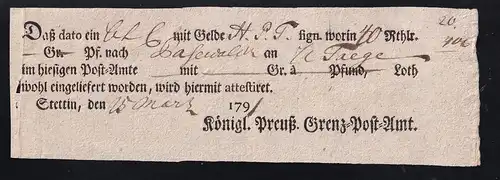 20
Daß dato ein Bl C mit Gelde H. P. T. sign. worin 40 Rthlr.
— Gr. — Pf. nach Pasewalk an Taege
im hiesigen Post-Amte — mit — Gr. à — Pfund, — Loth
wohl eingeliefert worden, wird hiermit attestiret.
Stettin, den 15 Mart 1791
Königl. Preuß. Grenz-Post-Amt.